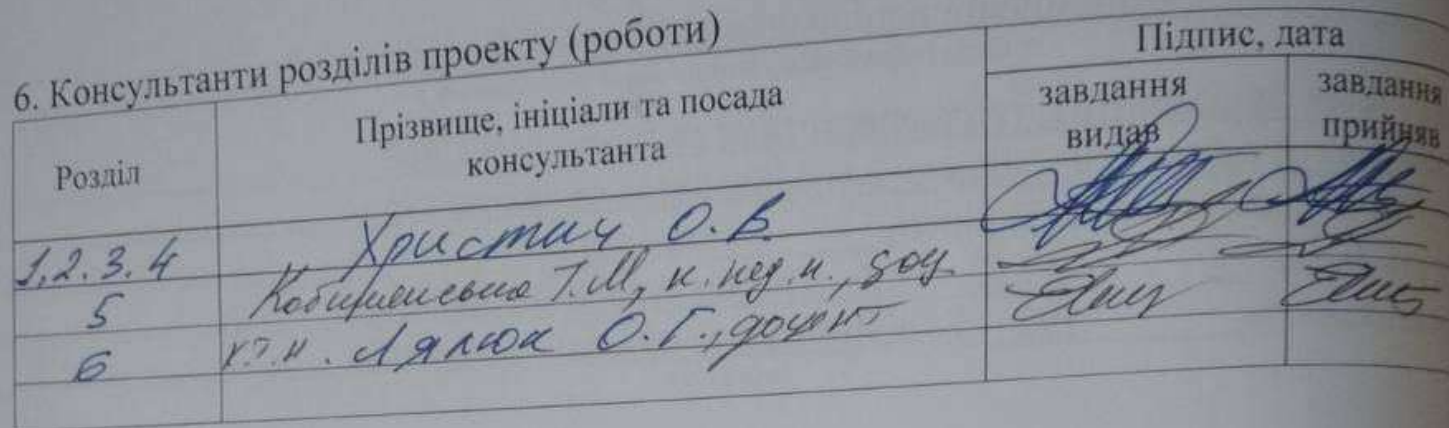 6. Консультанти розділів проекту (роботи)
Розділ
Прізвище, ініціали та посада
консультанта
Підпис, дата
завдання
видав
завдання
прийняв
1,2.3.4 Христич О.В.
5 Т.М, к.пед.н., доц.
6 к.т.н. Лялюк О.Г., доцент